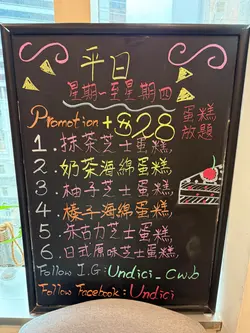 平日
星期一至星期四
Promotion + $28 蛋糕放題
1. 抹茶芝士蛋糕
2. 奶茶海綿蛋糕
3. 柚子芝士蛋糕
4. 榛子海綿蛋糕
5. 朱古力芝士蛋糕
6. 日式原味芝士蛋糕
Follow I.G : Undici_cwb
Follow Facebook : Undici